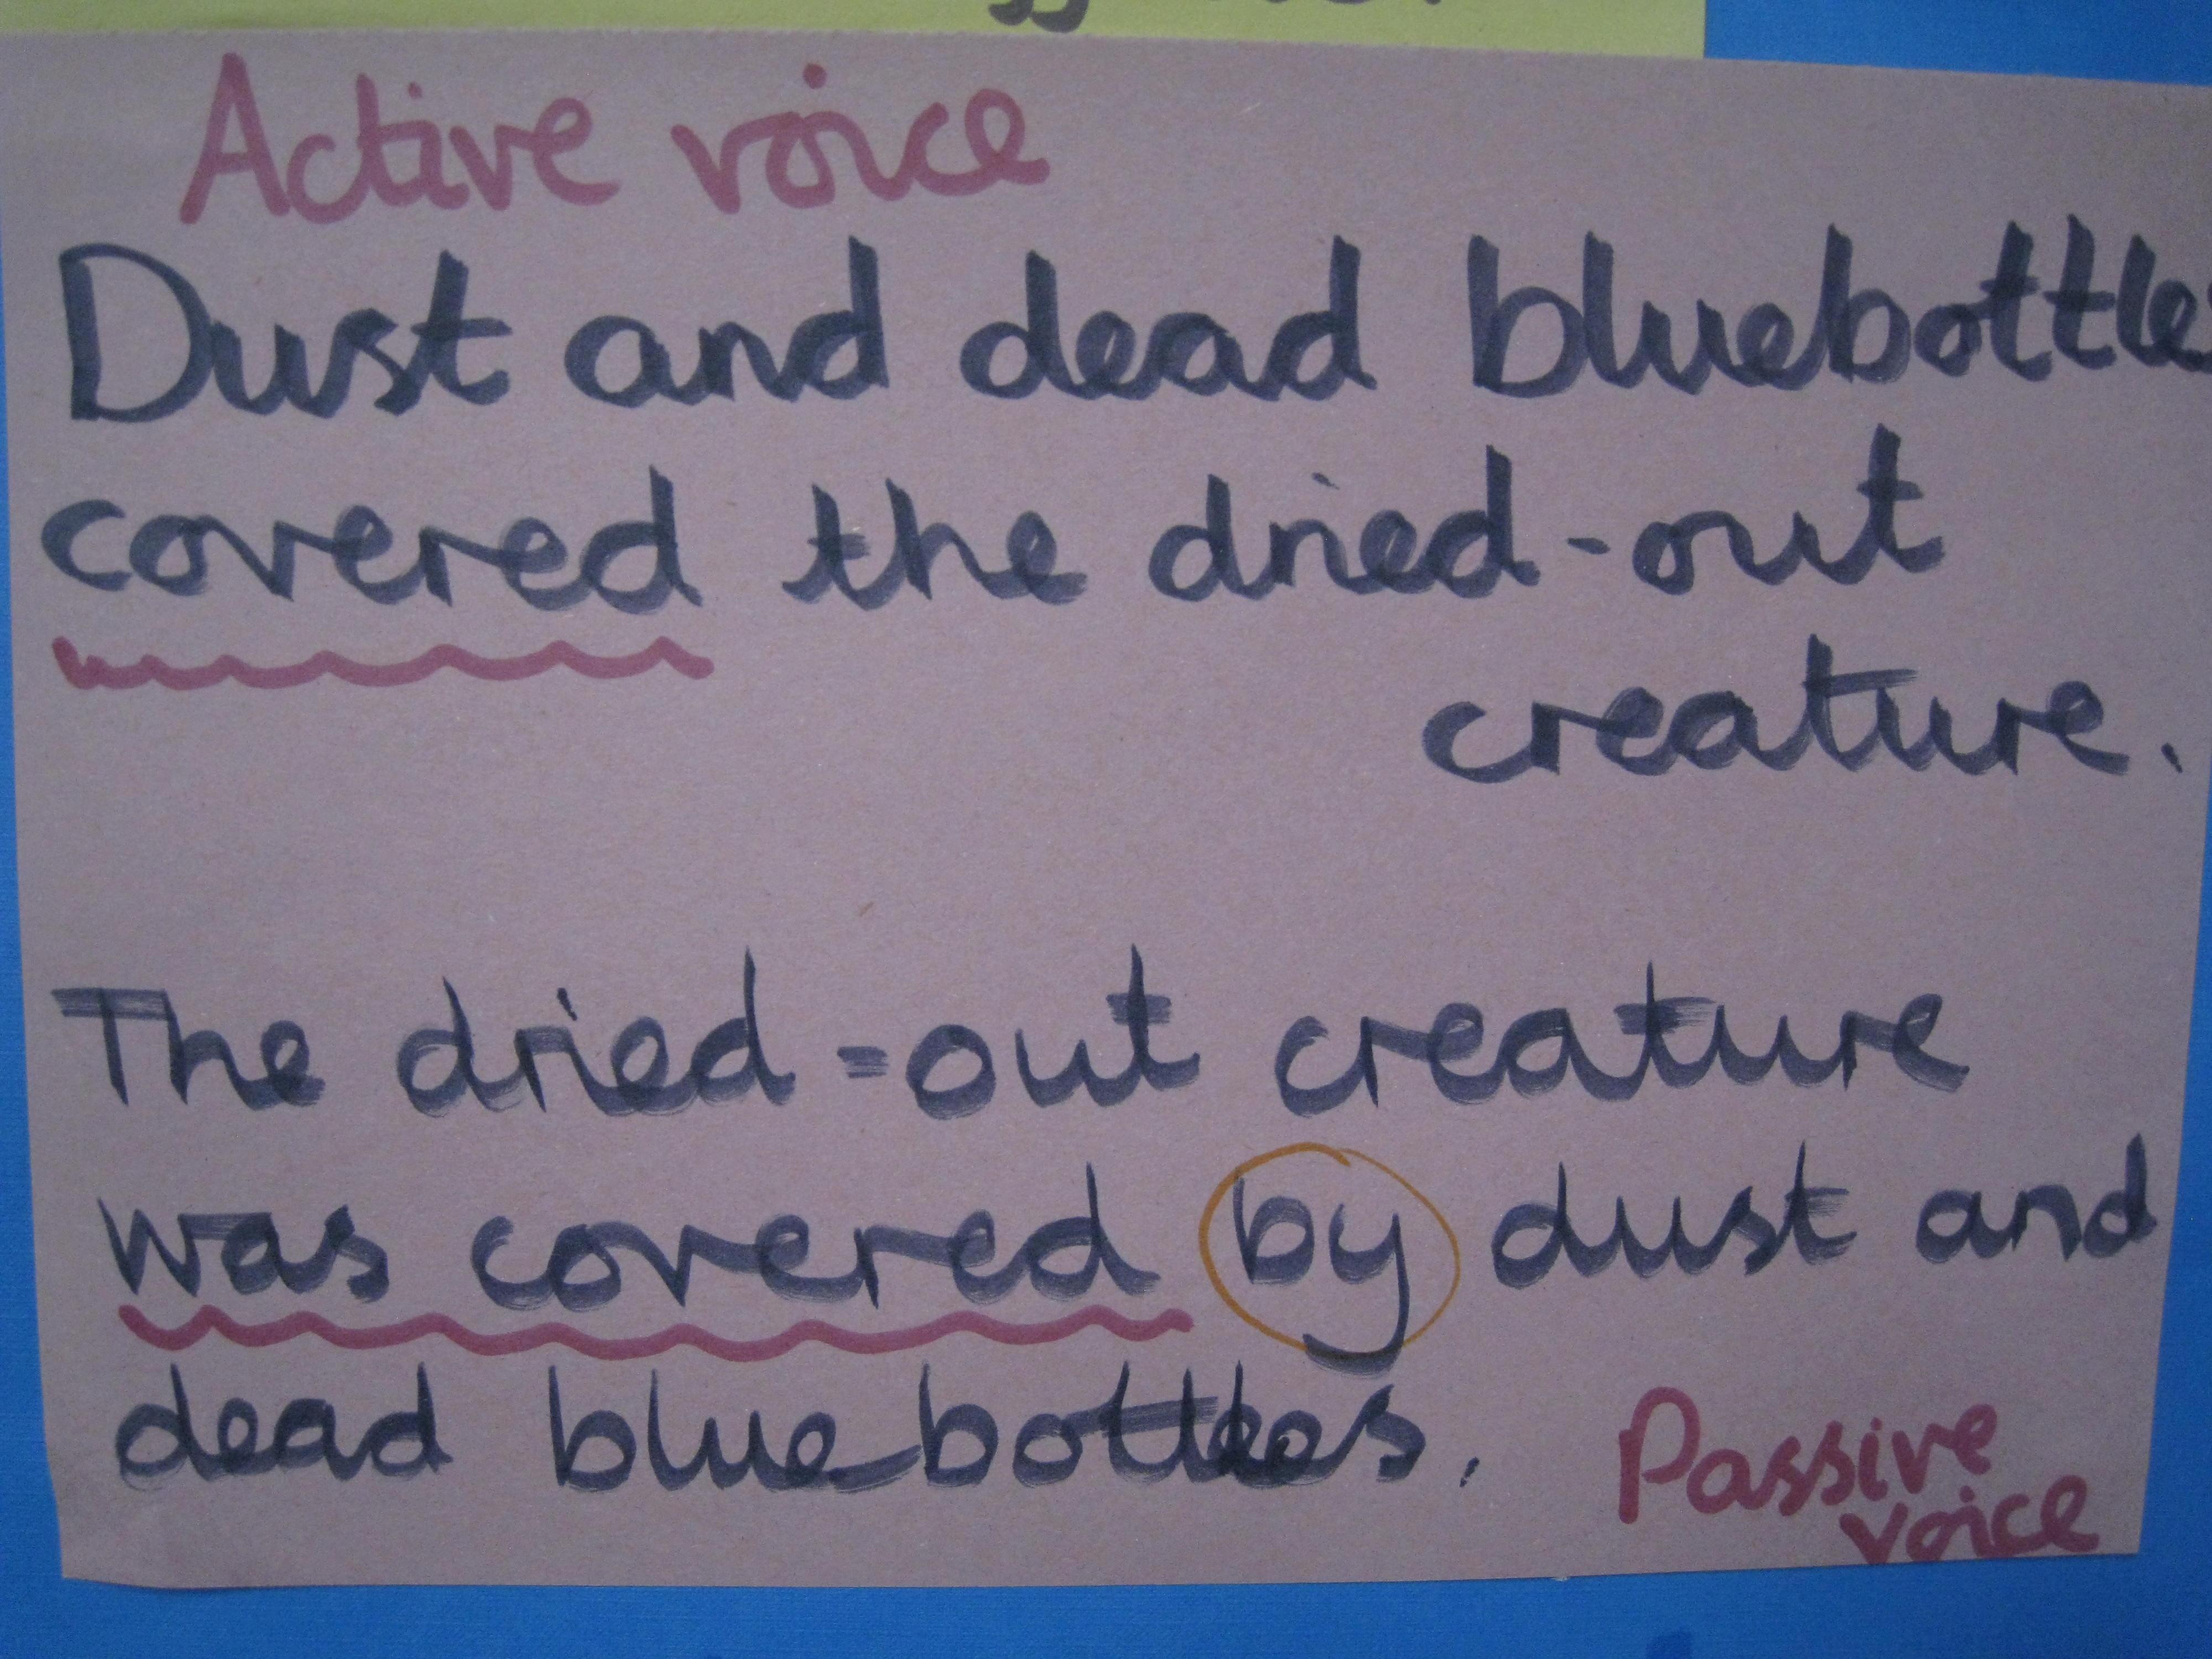 Active voice
Dust and dead bluebottles
covered the dried-out
creature.
The dried-out creature
was covered by dust and
dead bluebottles.
Passive
voice